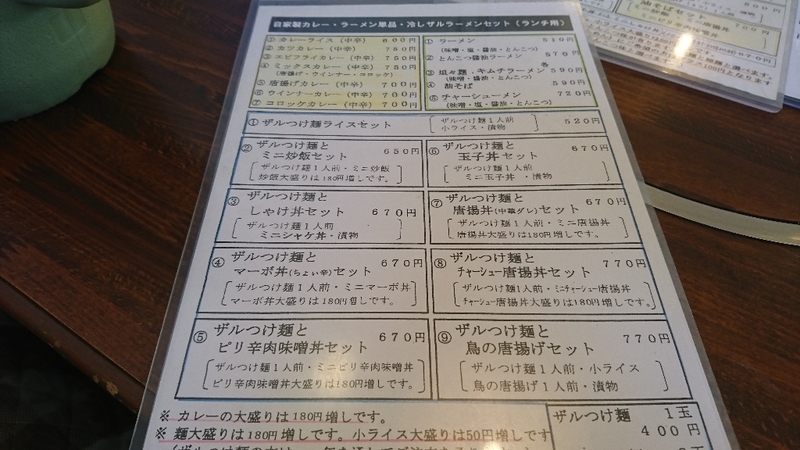 自家製カレー・ラーメン単品・冷しザルラーメンセット（ランチ用）
① カレーライス（中辛） 600円
② カツカレー（中辛） 750円
③ エビフライカレー（中辛） 750円
④ ミックスカレー（中辛） 750円
（唐揚げ・ウインナー・コロッケ）
⑤ 唐揚げカレー（中辛） 700円
⑥ ウインナーカレー（中辛） 700円
⑦ コロッケカレー（中辛） 700円
① ラーメン 510円
（味噌・塩・醤油・とんこつ）
② とんこつ醤油ラーメン 570円
各
③ 坦々麺・キムチラーメン 590円
（味噌・塩・醤油・とんこつ）
④ 麻そば 590円
⑤ チャーシューメン 720円
（味噌・塩・醤油・とんこつ）
① ザルつけ麺ライスセット
ザルつけ麺１人前 520円
小ライス・漬物
② ザルつけ麺と
ミニ炒飯セット 650円
ザルつけ麺１人前・ミニ炒飯
炒飯大盛りは180円増しです。
③ ザルつけ麺と
しゃけ丼セット 670円
ザルつけ麺１人前
ミニシャケ丼・漬物
④ ザルつけ麺と
マーボ丼(ちょい辛)セット 670円
ザルつけ麺１人前・ミニマーボ丼
マーボ丼大盛りは180円増しです。
⑤ ザルつけ麺と
ピリ辛肉味噌丼セット 670円
ザルつけ麺１人前・ミニピリ辛肉味噌丼
ピリ辛肉味噌丼大盛りは180円増しです。
⑥ ザルつけ麺と
玉子丼セット 670円
ザルつけ麺１人前
ミニ玉子丼・漬物
⑦ ザルつけ麺と
唐揚丼(中華ダレ)セット 670円
ザルつけ麺１人前・ミニ唐揚丼
唐揚丼大盛りは180円増しです。
⑧ ザルつけ麺と
チャーシュー唐揚丼セット 770円
ザルつけ麺１人前・ミニチャーシュー唐揚丼
チャーシュー唐揚丼大盛りは180円増しです。
⑨ ザルつけ麺と
鳥の唐揚げセット 770円
ザルつけ麺１人前・小ライス
鳥の唐揚げ１人前・漬物
※ カレーの大盛りは180円増しです。
※ 麺大盛りは180円増しです。小ライス大盛りは50円増しです
ザルつけ麺 １玉
400円